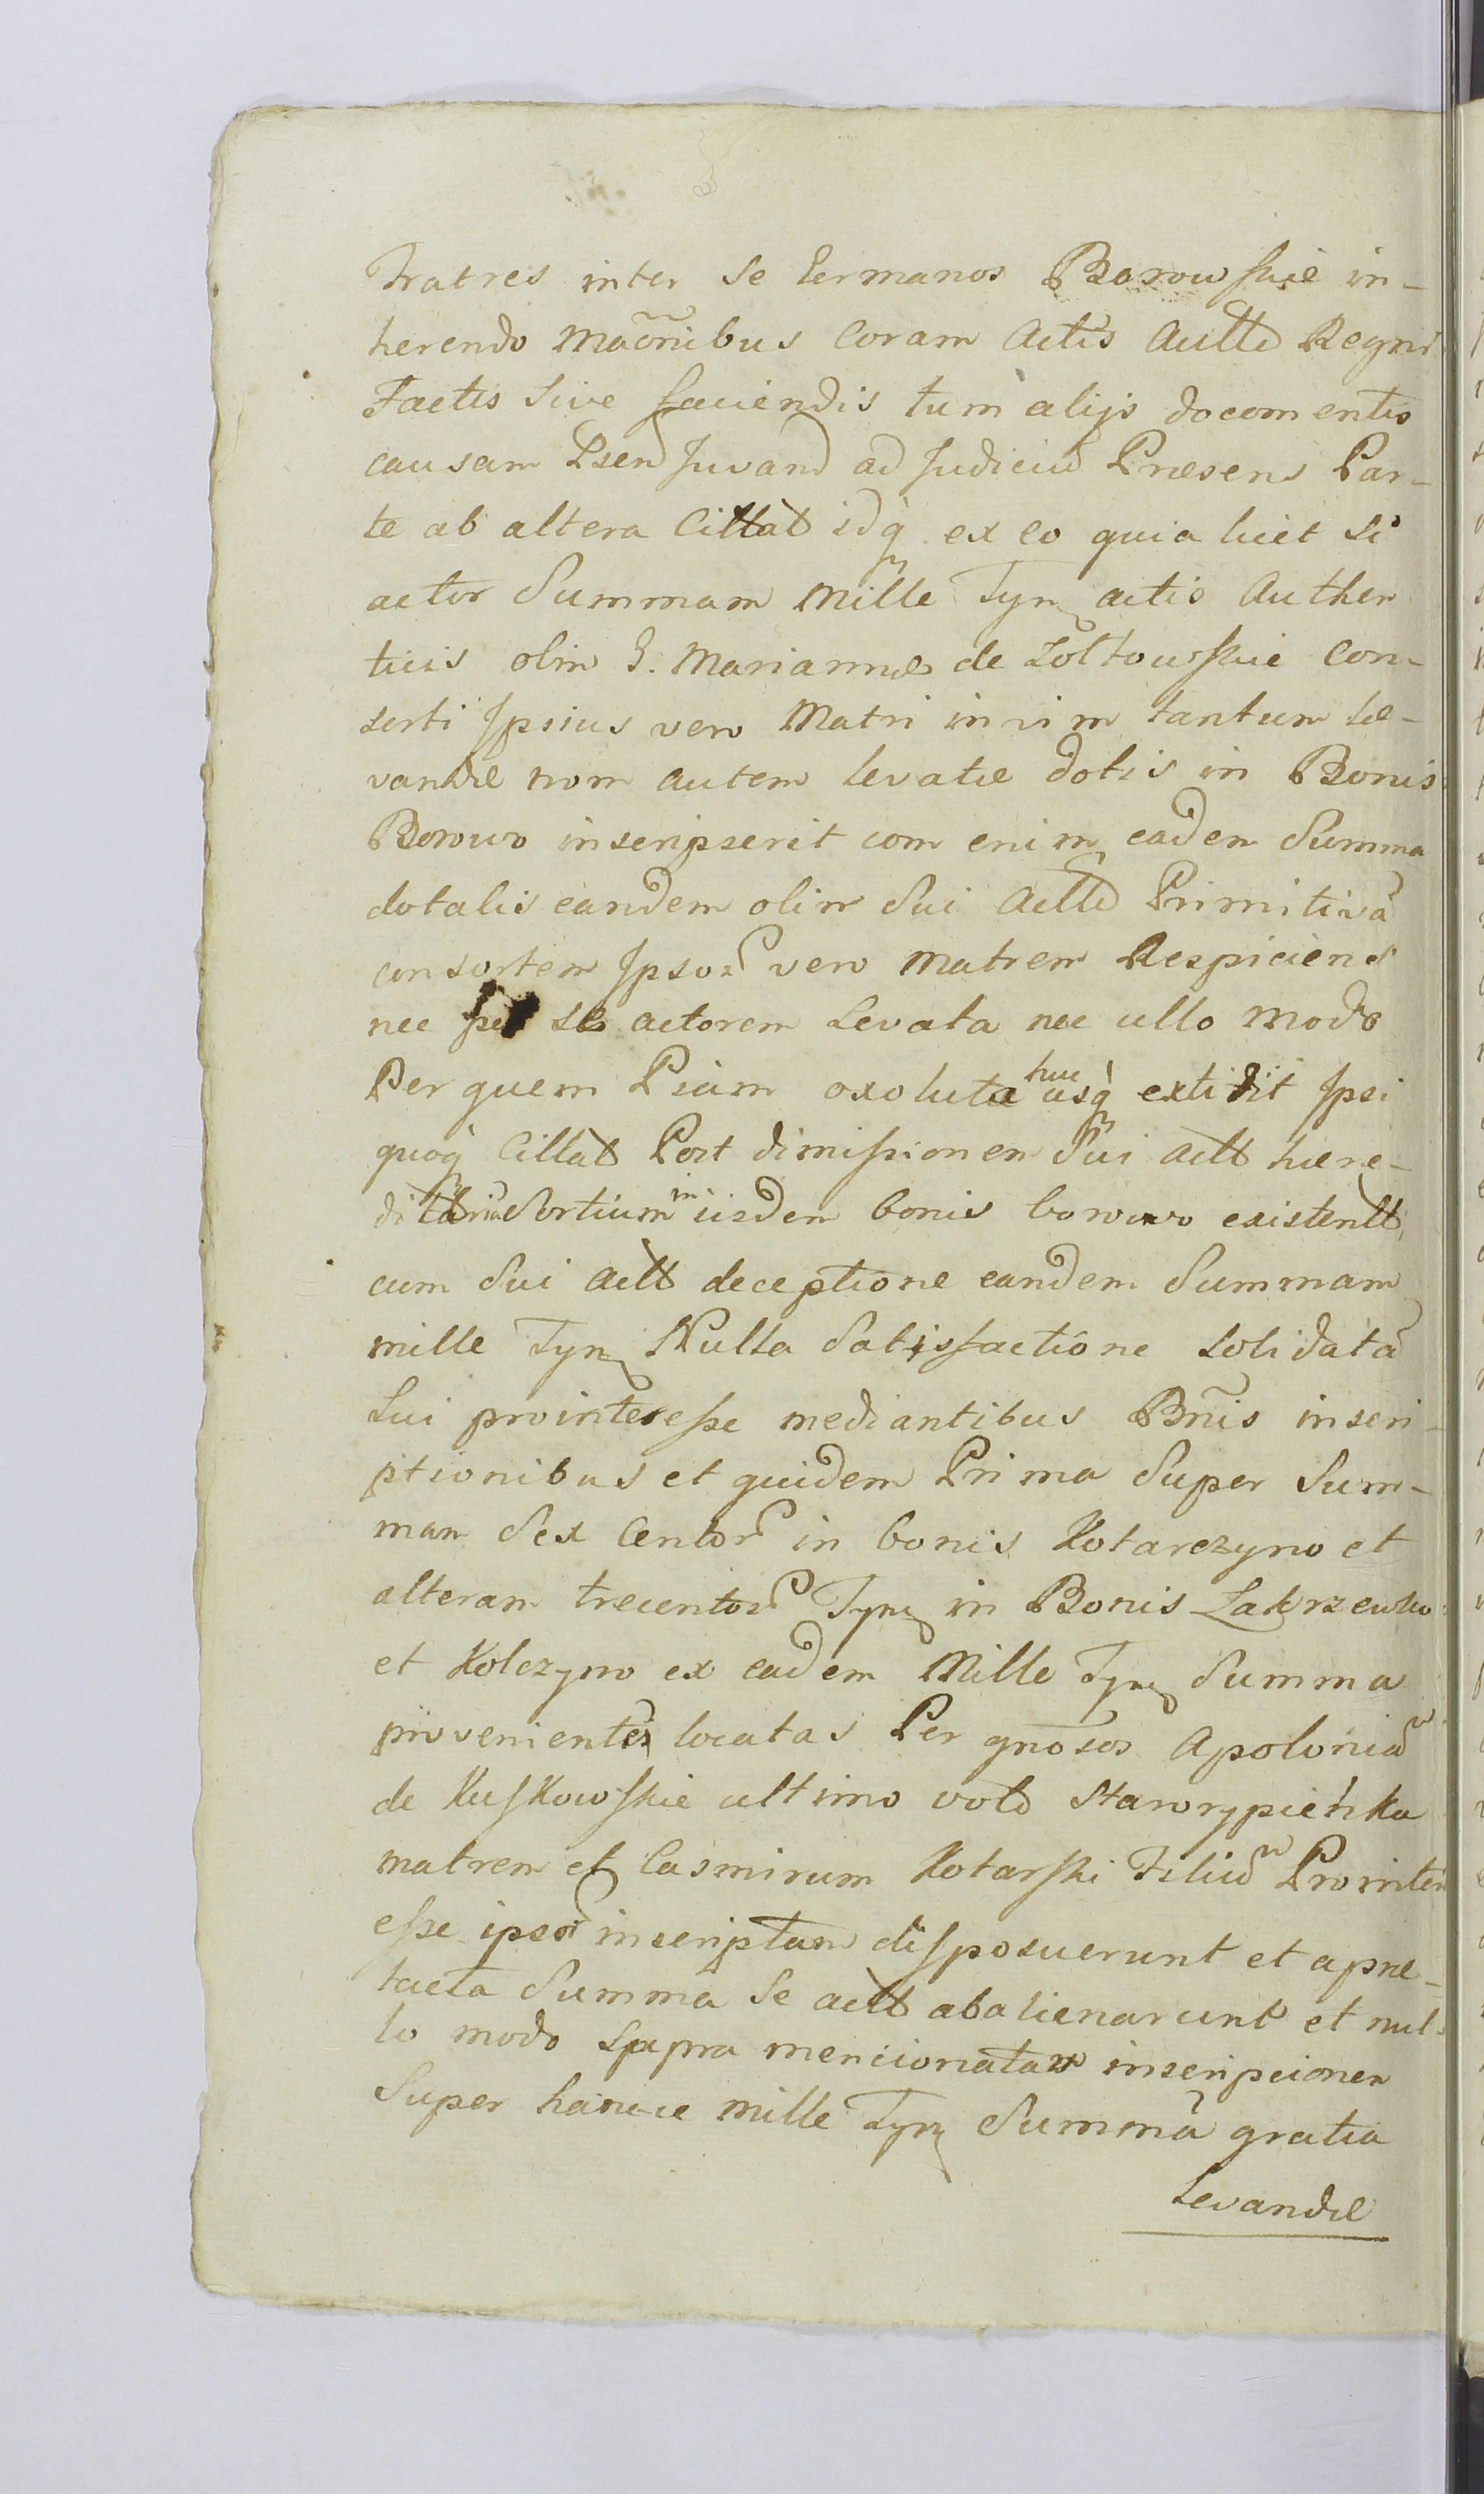 Fratres inter Se Germanos Borowskie in-
herendo Mãconibus Coram Actis Autt. Regni
Factis Sive faciendis tum alijs documentis
causam Psen Juvand ad Judiciū Præsens Par-
te ab altera Cittat idq̀ ex eo quia licet si
actor Summam Mille Tyn actis Authen
ticis olim G. Mariannæ de Zołtowskie Con-
sorti Ipsius vero Matri in vim tantum le-
vandæ non autem levatæ dotis in Bonis
Borowo inscripserit com enim eadem Summa
dotalis eandem olim Sui Actt Primitivā
consortem Ipsor vero Matrem Respiciens
nec per se actorem Levata nec ullo modo
Per quem Piam oxoluta huc usq̀ extidit Ipsi
quoq̀ Cittat Post dimissionem Sui Actt hære-
ditariæ Sortium in iisdem bonis borowo existentt
cum Sui Actt deceptione eandem Summam
mille Tyn Nulla Satisfactione Solidatā
Sui prointeresse mediantibus Bnis inscri-
ptionibus et quidem Prima Super Sum-
mam Sex Centor in bonis Kotarczyno et
alteram trecentor Tyn in Bonis Zakrzewko
et Kolczyno ex eadem Mille Tyn Summa
provenientes locatas Per gnosos Apoloniam
de Kuskowskie ultimo voto Starorypieńka
matrem et Casmirum Kotarski Filium Prointer
esse ipsor inscriptam disposuerunt et a præ-
tacta Summa Se actt abalienarunt et nul-
lo modo Supra mencionatam inscripcionem
Super hancce mille Tyn Summā gratia
Levandæ